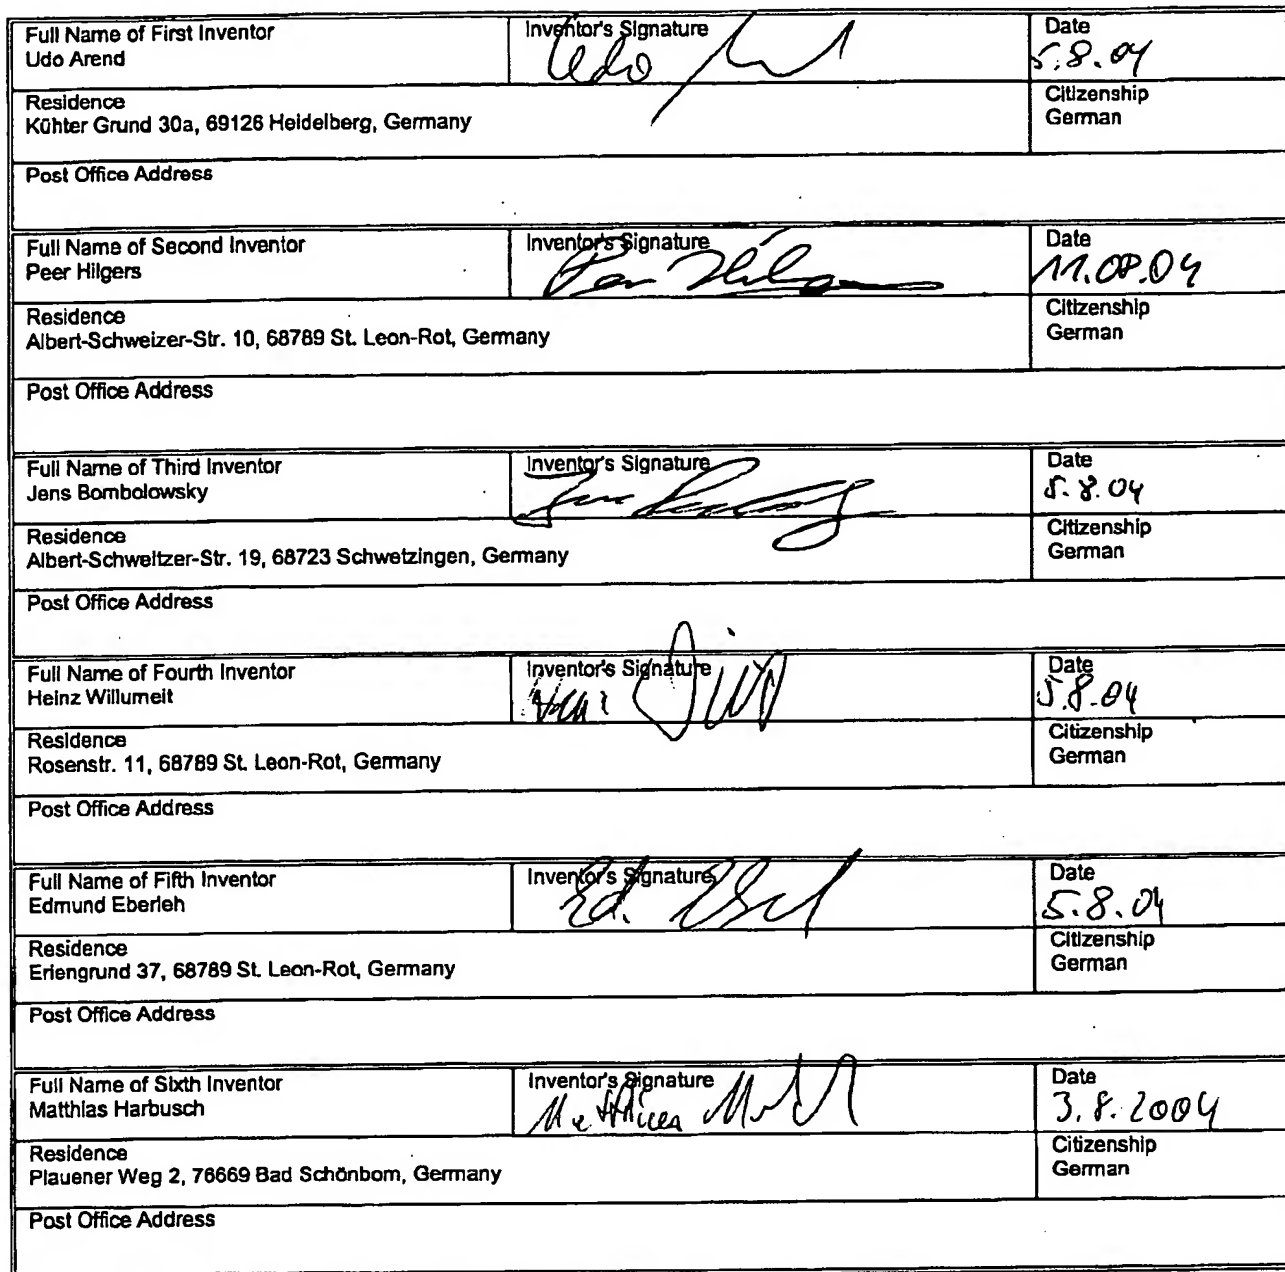 Full Name of First Inventor
Udo Arend
Inventor's Signature
Udo
Date
5.8.04
Residence
Kühter Grund 30a, 69126 Heidelberg, Germany
Citizenship
German
Post Office Address
Full Name of Second Inventor
Peer Hilgers
Inventor's Signature
Peer Hilgers
Date
11.08.04
Residence
Albert-Schweizer-Str. 10, 68789 St. Leon-Rot, Germany
Citizenship
German
Post Office Address
Full Name of Third Inventor
Jens Bombolowsky
Inventor's Signature
Date
5.8.04
Residence
Albert-Schweitzer-Str. 19, 68723 Schwetzingen, Germany
Citizenship
German
Post Office Address
Full Name of Fourth Inventor
Heinz Willumeit
Inventor's Signature
Date
5.8.04
Residence
Rosenstr. 11, 68789 St. Leon-Rot, Germany
Citizenship
German
Post Office Address
Full Name of Fifth Inventor
Edmund Eberleh
Inventor's Signature
Ed.
Date
5.8.04
Residence
Erlengrund 37, 68789 St. Leon-Rot, Germany
Citizenship
German
Post Office Address
Full Name of Sixth Inventor
Matthias Harbusch
Inventor's Signature
Matthias
Date
3.8.2004
Residence
Plauener Weg 2, 76669 Bad Schönborn, Germany
Citizenship
German
Post Office Address